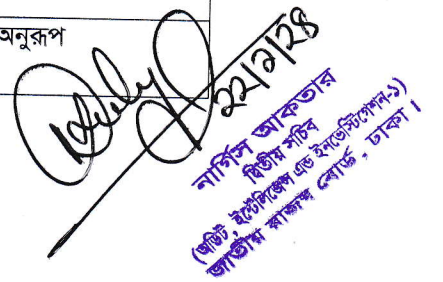 অনুরূপ
২২/২/২৪
নার্গিস আকতার
দ্বিতীয় সচিব
(অডিট, ইন্টেলিজেন্স এন্ড ইনভেস্টিগেশন-১)
জাতীয় রাজস্ব বোর্ড, ঢাকা।